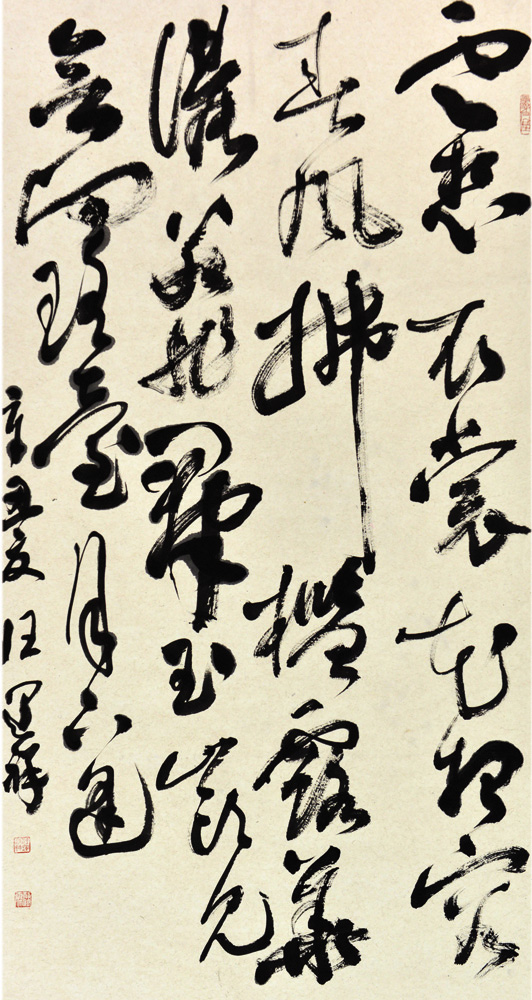 雲想衣裳花想容
春風拂檻露華
濃若非羣玉山頭見
會向瑤臺月下逢
辛丑夏汪